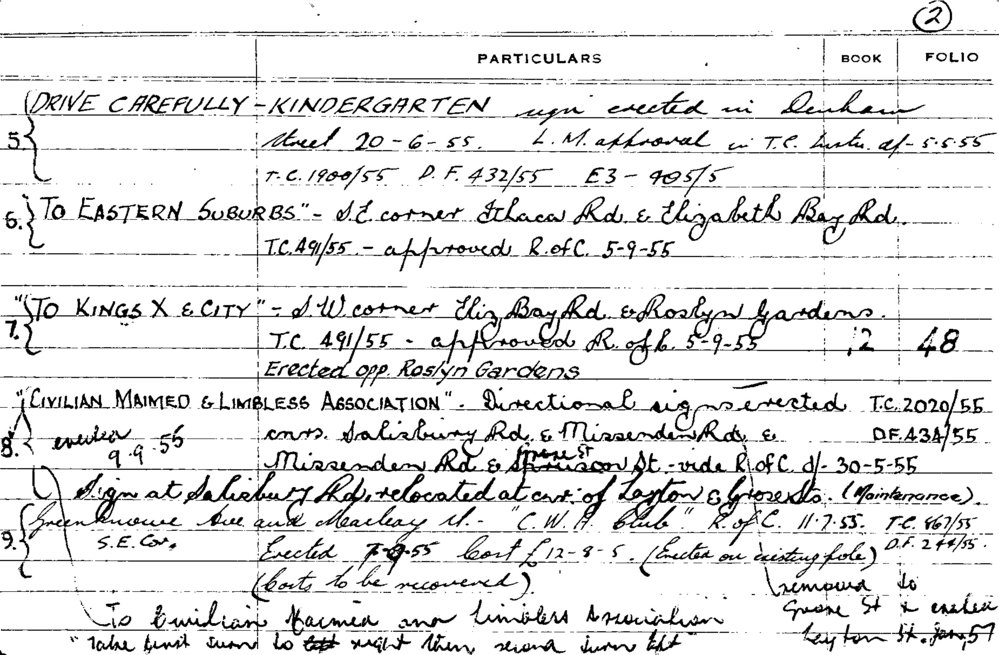 2
PARTICULARS BOOK FOLIO
5. DRIVE CAREFULLY - KINDERGARTEN sign erected in Denham
Street 20-6-55. L.M. approval in T.C. Instn. d/- 5.5.55
T.C. 1900/55 D.F. 432/55 E3 - 405/5
6. TO EASTERN SUBURBS" - S.E corner Ithaca Rd. & Elizabeth Bay Rd.
T.C. 491/55 - approved R. of C. 5-9-55
7. "TO KINGS X & CITY" - S.W corner Eliz Bay Rd. & Roslyn Gardens.
T.C. 491/55 - approved R. of C. 5-9-55 12 48
Erected opp. Roslyn Gardens
"CIVILIAN MAIMED & LIMBLESS ASSOCIATION" - Directional signs erected T.C. 2020/55
8. erected cnrs. Salisbury Rd. & Missenden Rd. & D.F. 434/55
9.9.55 Missenden Rd & Grose St St - vide R. of C. d/- 30-5-55
Sign at Salisbury Rd. relocated at cnr. of Layton & Grose Sts. (Maintenance).
9. Greenknowe Ave and Macleay St. - "C.W.A Club" R. of C. 11.7.55. T.C. 867/55
S.E. Cor. Erected 55 Cost £12-8-5. (Erected on existing pole) D.F. 244/55.
(Costs to be recovered)
removed to
To Civilian Maimed and Limbless Association Grose St & erected
"Take first turn to right then second turn left" Layton St. Jan, 57